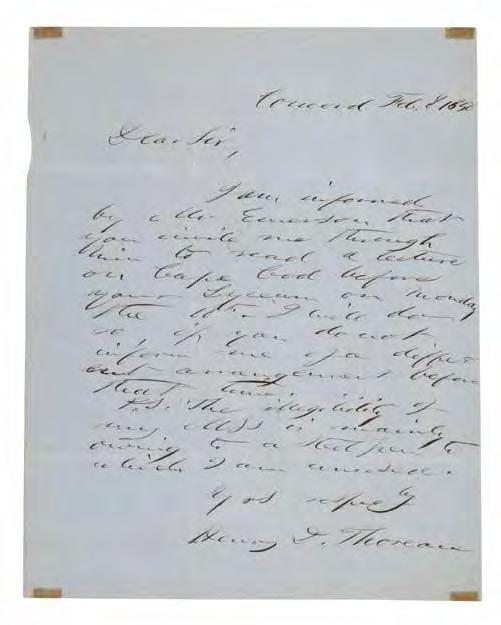 Concord Feb. 8 1850
Dear Sir,
I am informed
by Mr Emerson that
you invite me through
him to read a lecture
on Cape Cod before
your Lyceum on Monday
the I will do
so, if you do not
inform me of a differ
ent arrangement before
that time.
P.S. The illegibility of
my MSS is mainly
owing to a steel pen to
which I am unused.
Yrs respcy
Henry D. Thoreau